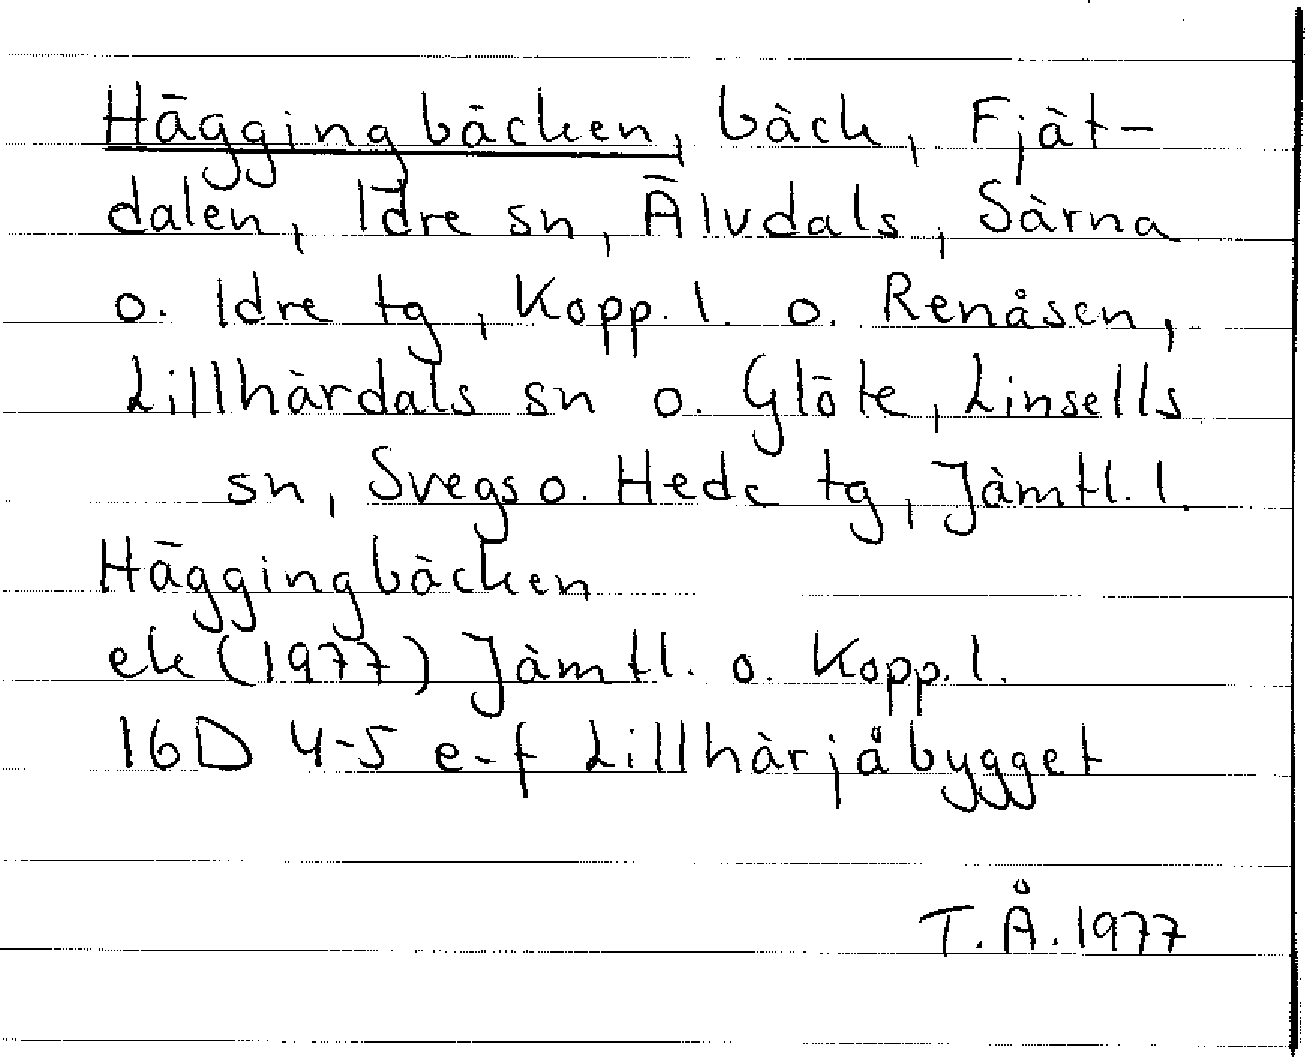 Häggingbäcken, bäck, Fjät-
dalen, Idre sn, Älvdals, Särna
o. Idre tg, Kopp. l. o. Renåsen,
Lillhärdals sn o. Glöte, Linsells
sn, Svegs o. Hede tg, Jämtl. l.
Häggingbäcken
ek (1977) Jämtl. o. Kopp. l.
16D 4-5 e-f Lillhärjåbygget
T.Å. 1977